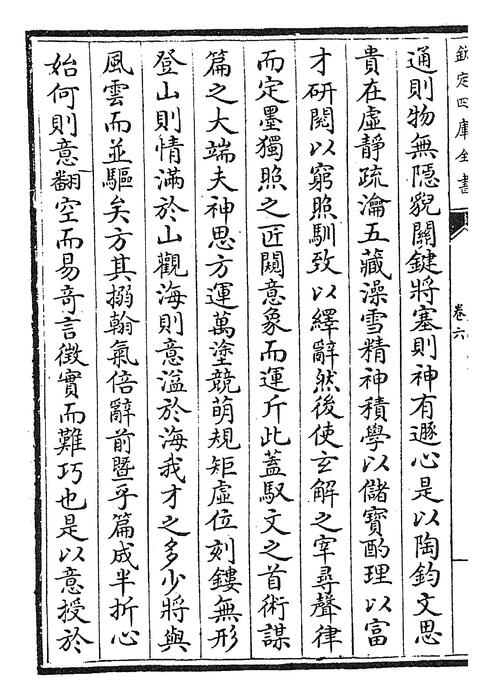 欽定四庫全書
卷六
通則物無隱貌關鍵將塞則神有遯心是以陶鈞文思
貴在虛靜疏瀹五藏澡雪精神積學以儲寶酌理以富
才研閱以窮照馴致以繹辭然後使玄解之宰尋聲律
而定墨獨照之匠闚意象而運斤此蓋馭文之首術謀
篇之大端夫神思方運萬塗競萌規矩虛位刻鏤無形
登山則情滿於山觀海則意溢於海我才之多少將與
風雲而並驅矣方其搦翰氣倍辭前暨乎篇成半折心
始何則意翻空而易奇言徵實而難巧也是以意授於